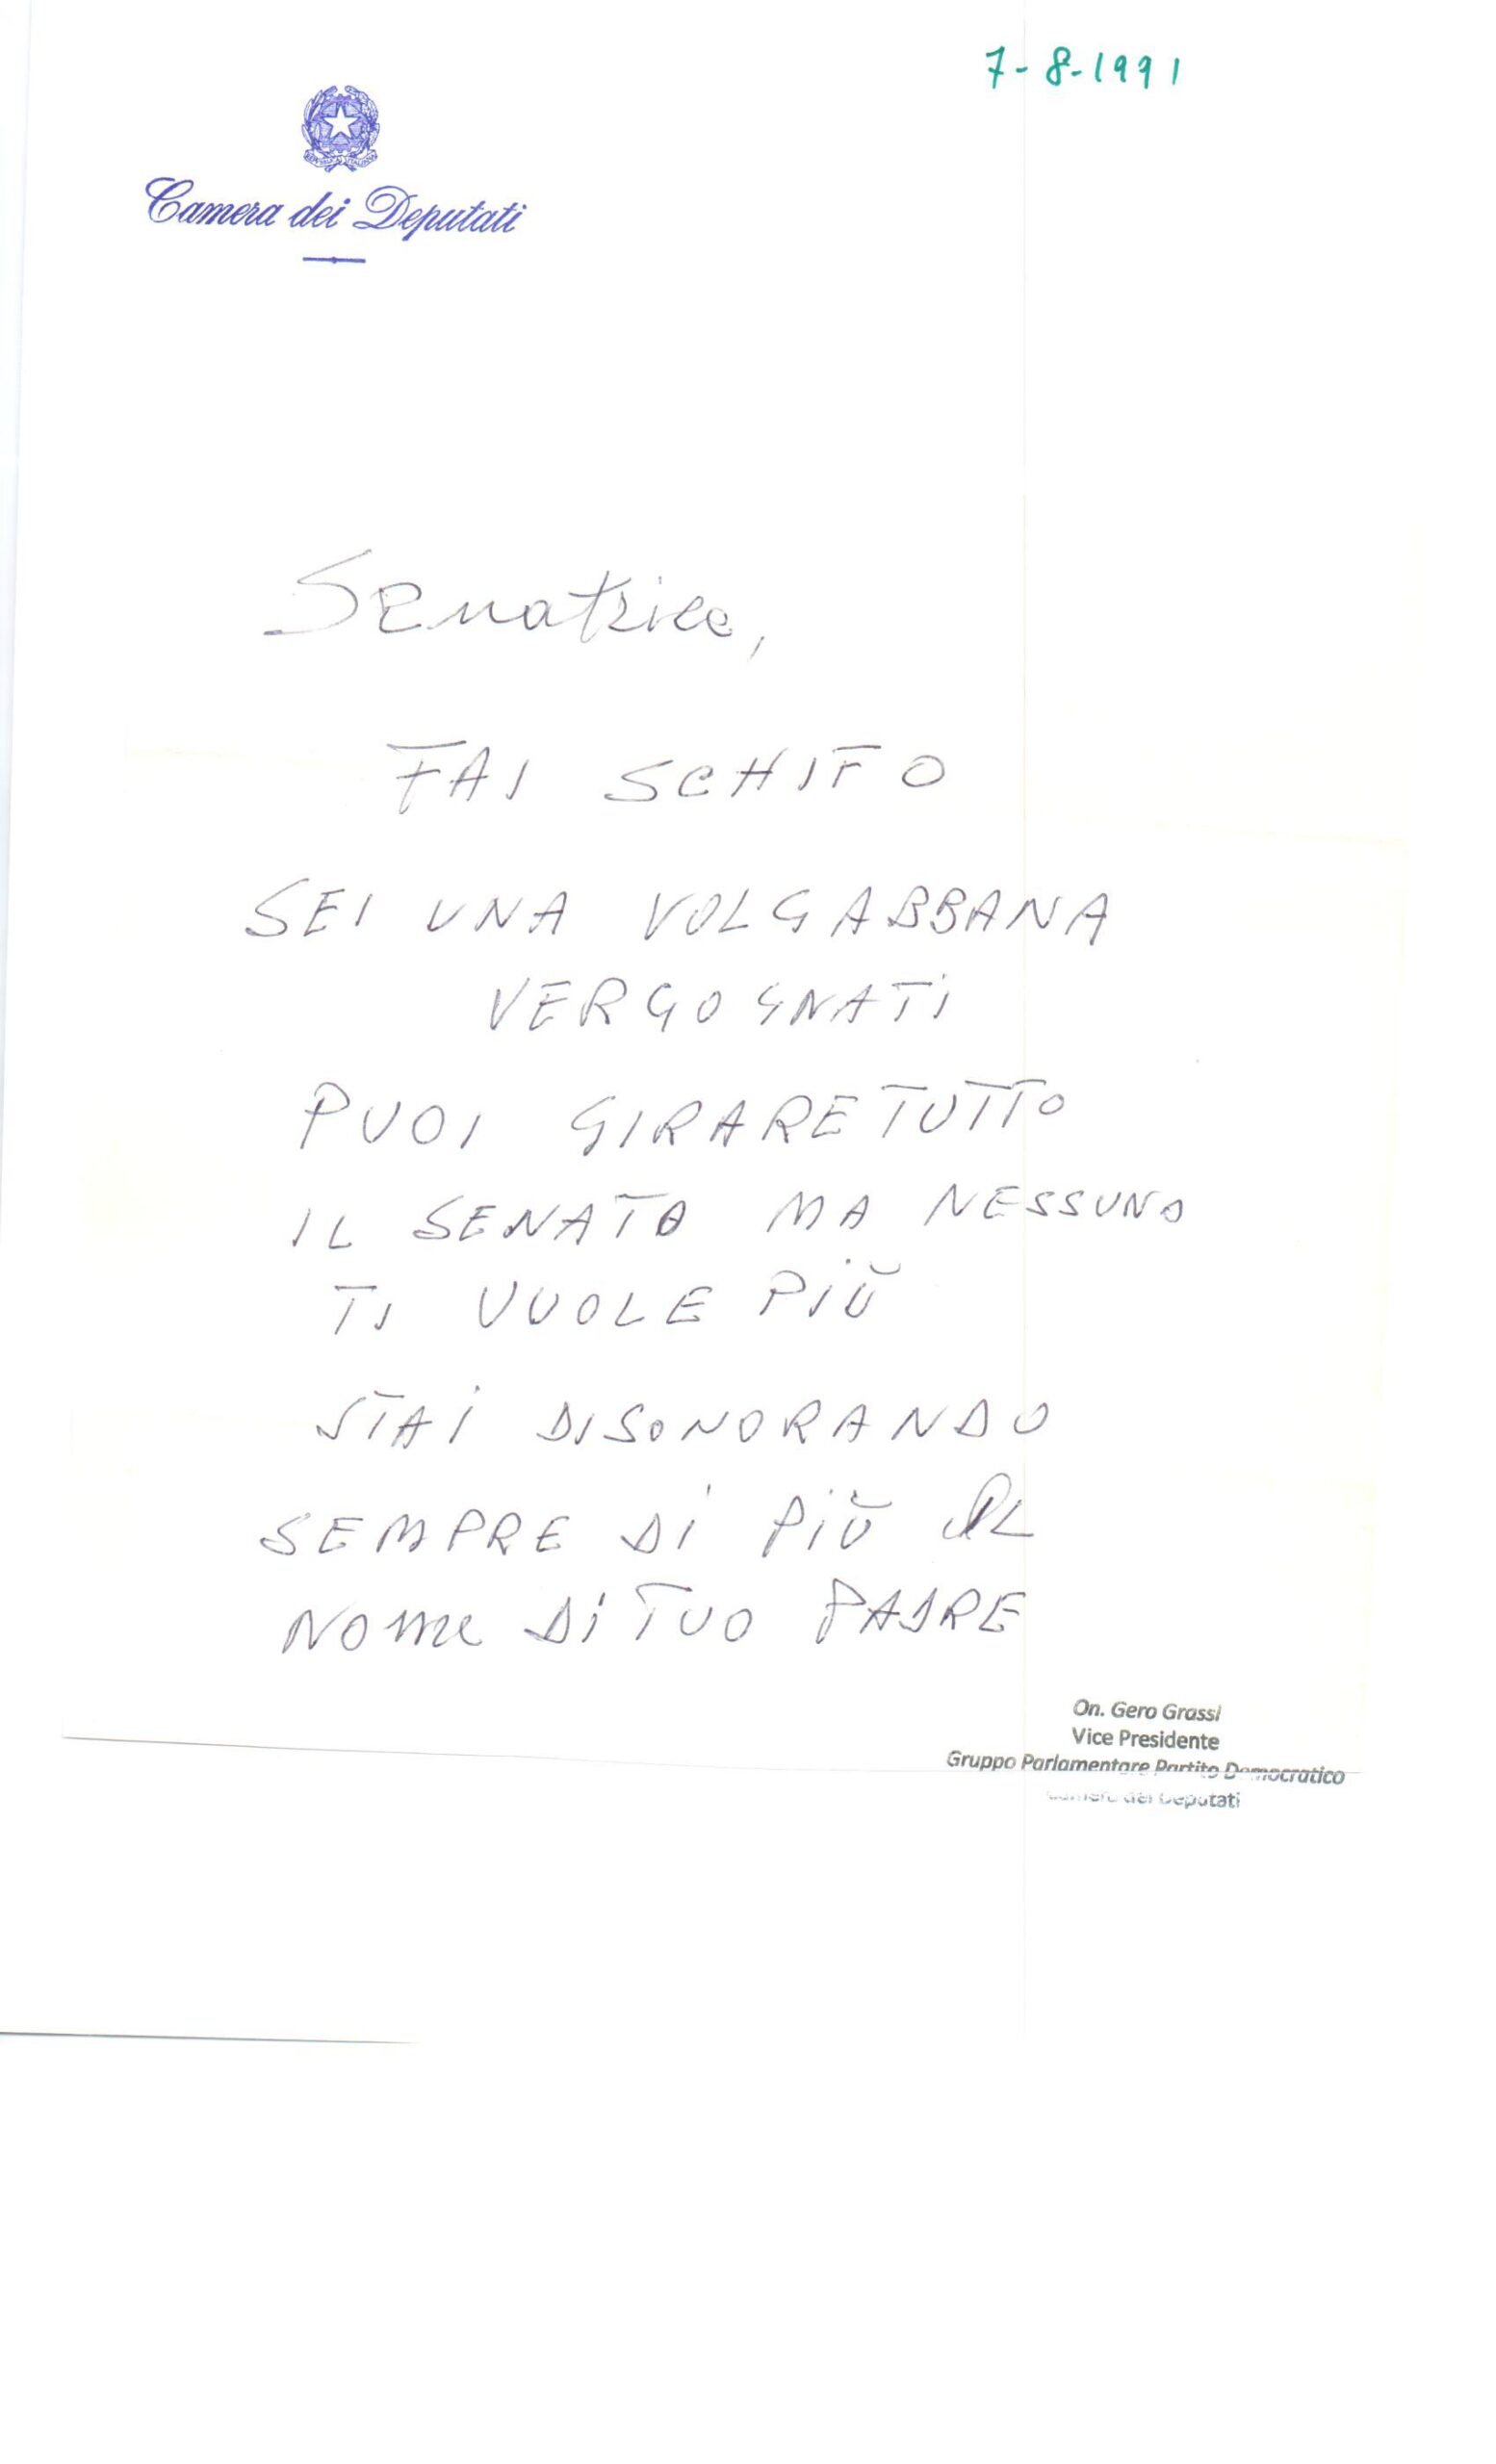 7-8-1991
Camera dei Deputati
Senatrice,
FAI SCHIFO
SEI UNA VOLGABBANA
VERGOGNATI
PUOI GIRARE TUTTO
IL SENATO MA NESSUNO
TI VUOLE PIÙ
STAI DISONORANDO
SEMPRE DI PIÙ IL
NOME DI TUO PADRE
On. Gero Grassi
Vice Presidente
Gruppo Parlamentare Partito Democratico
Camera dei Deputati